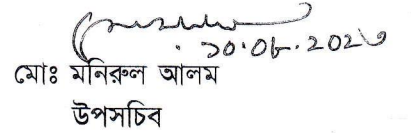 ১০.০৮.২০২৩
মোঃ মনিরুল আলম
উপসচিব